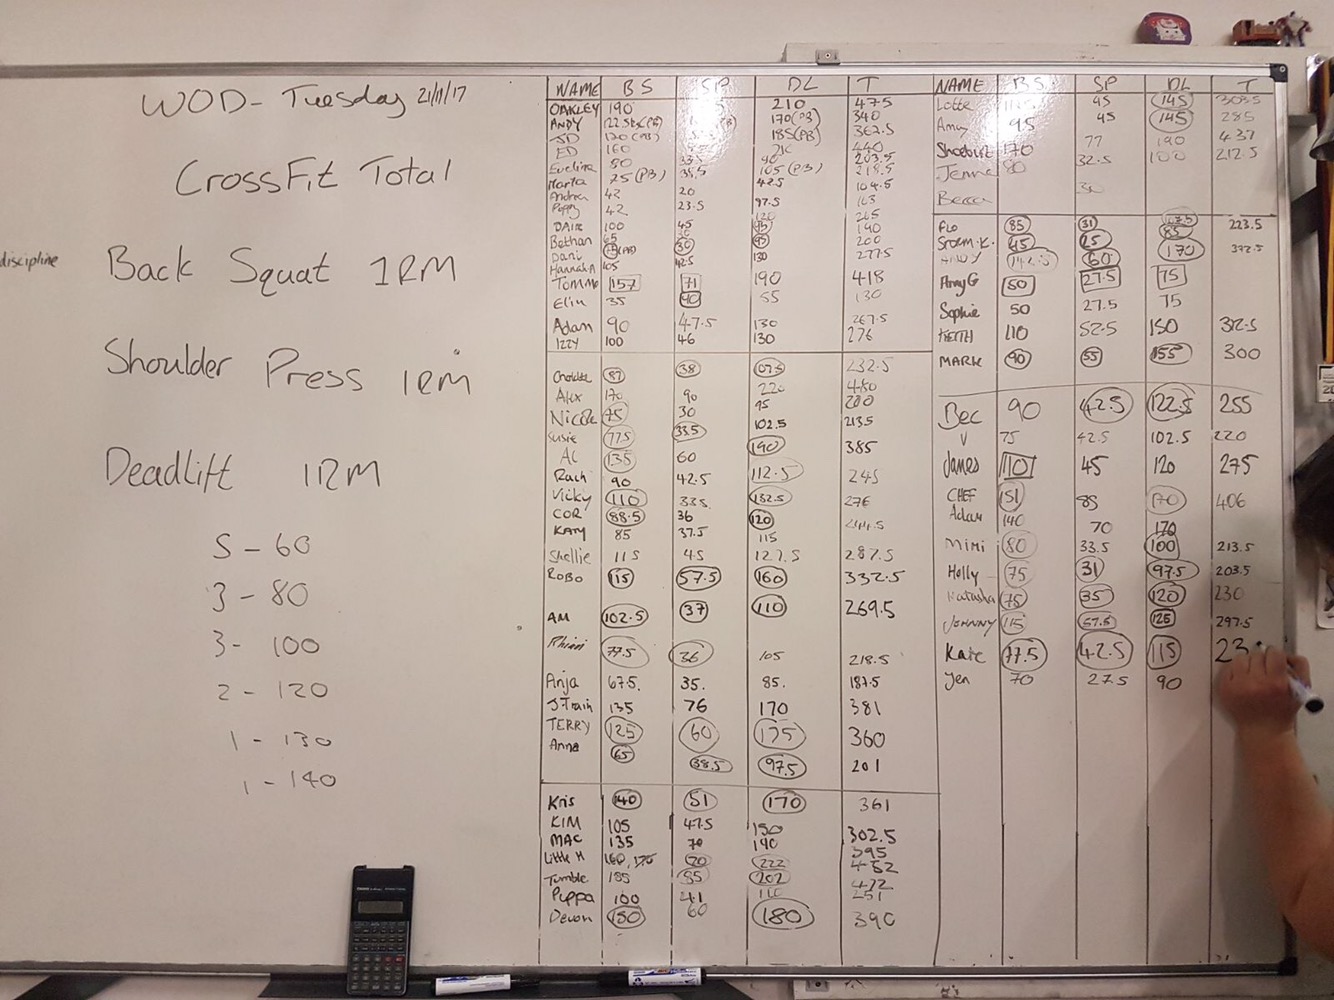 WOD - Tuesday 21/11/17
CrossFit Total
discipline
Back Squat 1RM
Shoulder Press 1RM
Deadlift 1RM
5 - 60
3 - 80
3 - 100
2 - 120
1 - 130
1 - 140
NAME BS SP DL T
OAKLEY 190 210 475
ANDY 122.5kg(PB) 170(PB) 340
JD 120(PB) 185(PB) 362.5
ED 160 210 440
Evelina 80 33.5 90 203.5
Marta 75(PB) 38.5 105(PB) 218.5
Andrea 42 20 42.5 104.5
Poppy 42 23.5 97.5 163
DAIR 100 45 120 265
Bethan 65 30 95 190
Dani 30 95 200
Hannah A 105 42.5 130 277.5
Tommo 157 71 190 418
Elin 35 40 55 130
Adam 90 47.5 130 267.5
IZZY 100 46 130 276
Charlotte 87 38 107.5 232.5
Alex 170 90 220 480
Nicole 75 30 95 200
Susie 77.5 33.5 102.5 213.5
AL 135 60 190 385
Rach 90 42.5 112.5 245
Vicky 110 33.5 132.5 276
COR 88.5 36 120 244.5
KATY 85 37.5 115
Shellie 115 45 127.5 287.5
ROBO 115 57.5 160 332.5
AM 102.5 37 110 269.5
Rhian 77.5 36 105 218.5
Anja 67.5. 35. 85. 187.5
J-Train 135 76 170 381
TERRY 125 60 175 360
Anna 65 38.5 97.5 201
Kris 140 51 170 361
KIM 105 47.5 150 302.5
MAC 135 70 190 395
Little H 160, 170 70 222 462
Tumble 185 85 202 472
Puppa 100 41 110 251
Devon 150 60 180 390
NAME BS SP DL T
Lotte 45 145 303.5
Amy 95 45 145 285
170 77 190 437
Jenna 80 32.5 100 212.5
Becca
FLO 85 31 107.5 223.5
Storm.K. 45 25 85
ANDY 142.5 60 170 372.5
Amy G 50 27.5 75
Sophie 50 27.5 75
KEITH 110 52.5 150 312.5
MARK 90 55 155 300
Bec 90 42.5 122.5 255
V 75 42.5 102.5 220
James 110 45 120 275
CHEF 151 85 170 406
Adam 140 70 170
Mimi 80 33.5 100 213.5
Holly 75 31 97.5 203.5
Natasha 75 35 120 230
JOHNNY 115 57.5 125 297.5
Kate 77.5 42.5 115 23
Jen 70 27.5 90